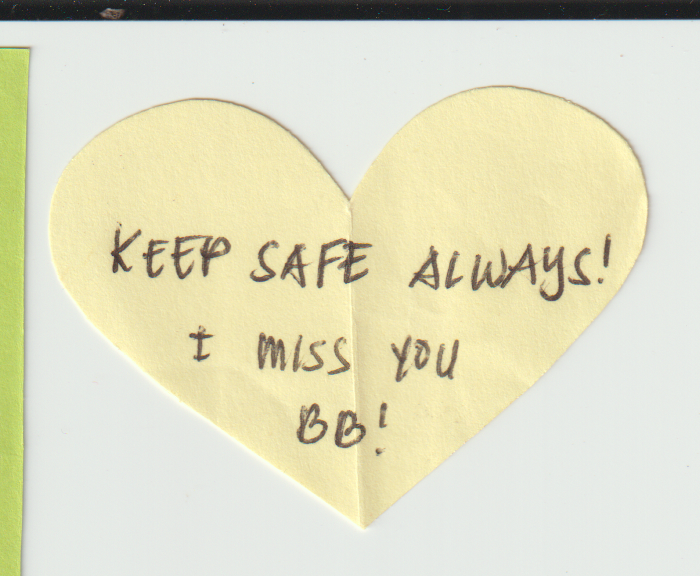 KEEP SAFE ALWAYS!
I MISS YOU
BB!